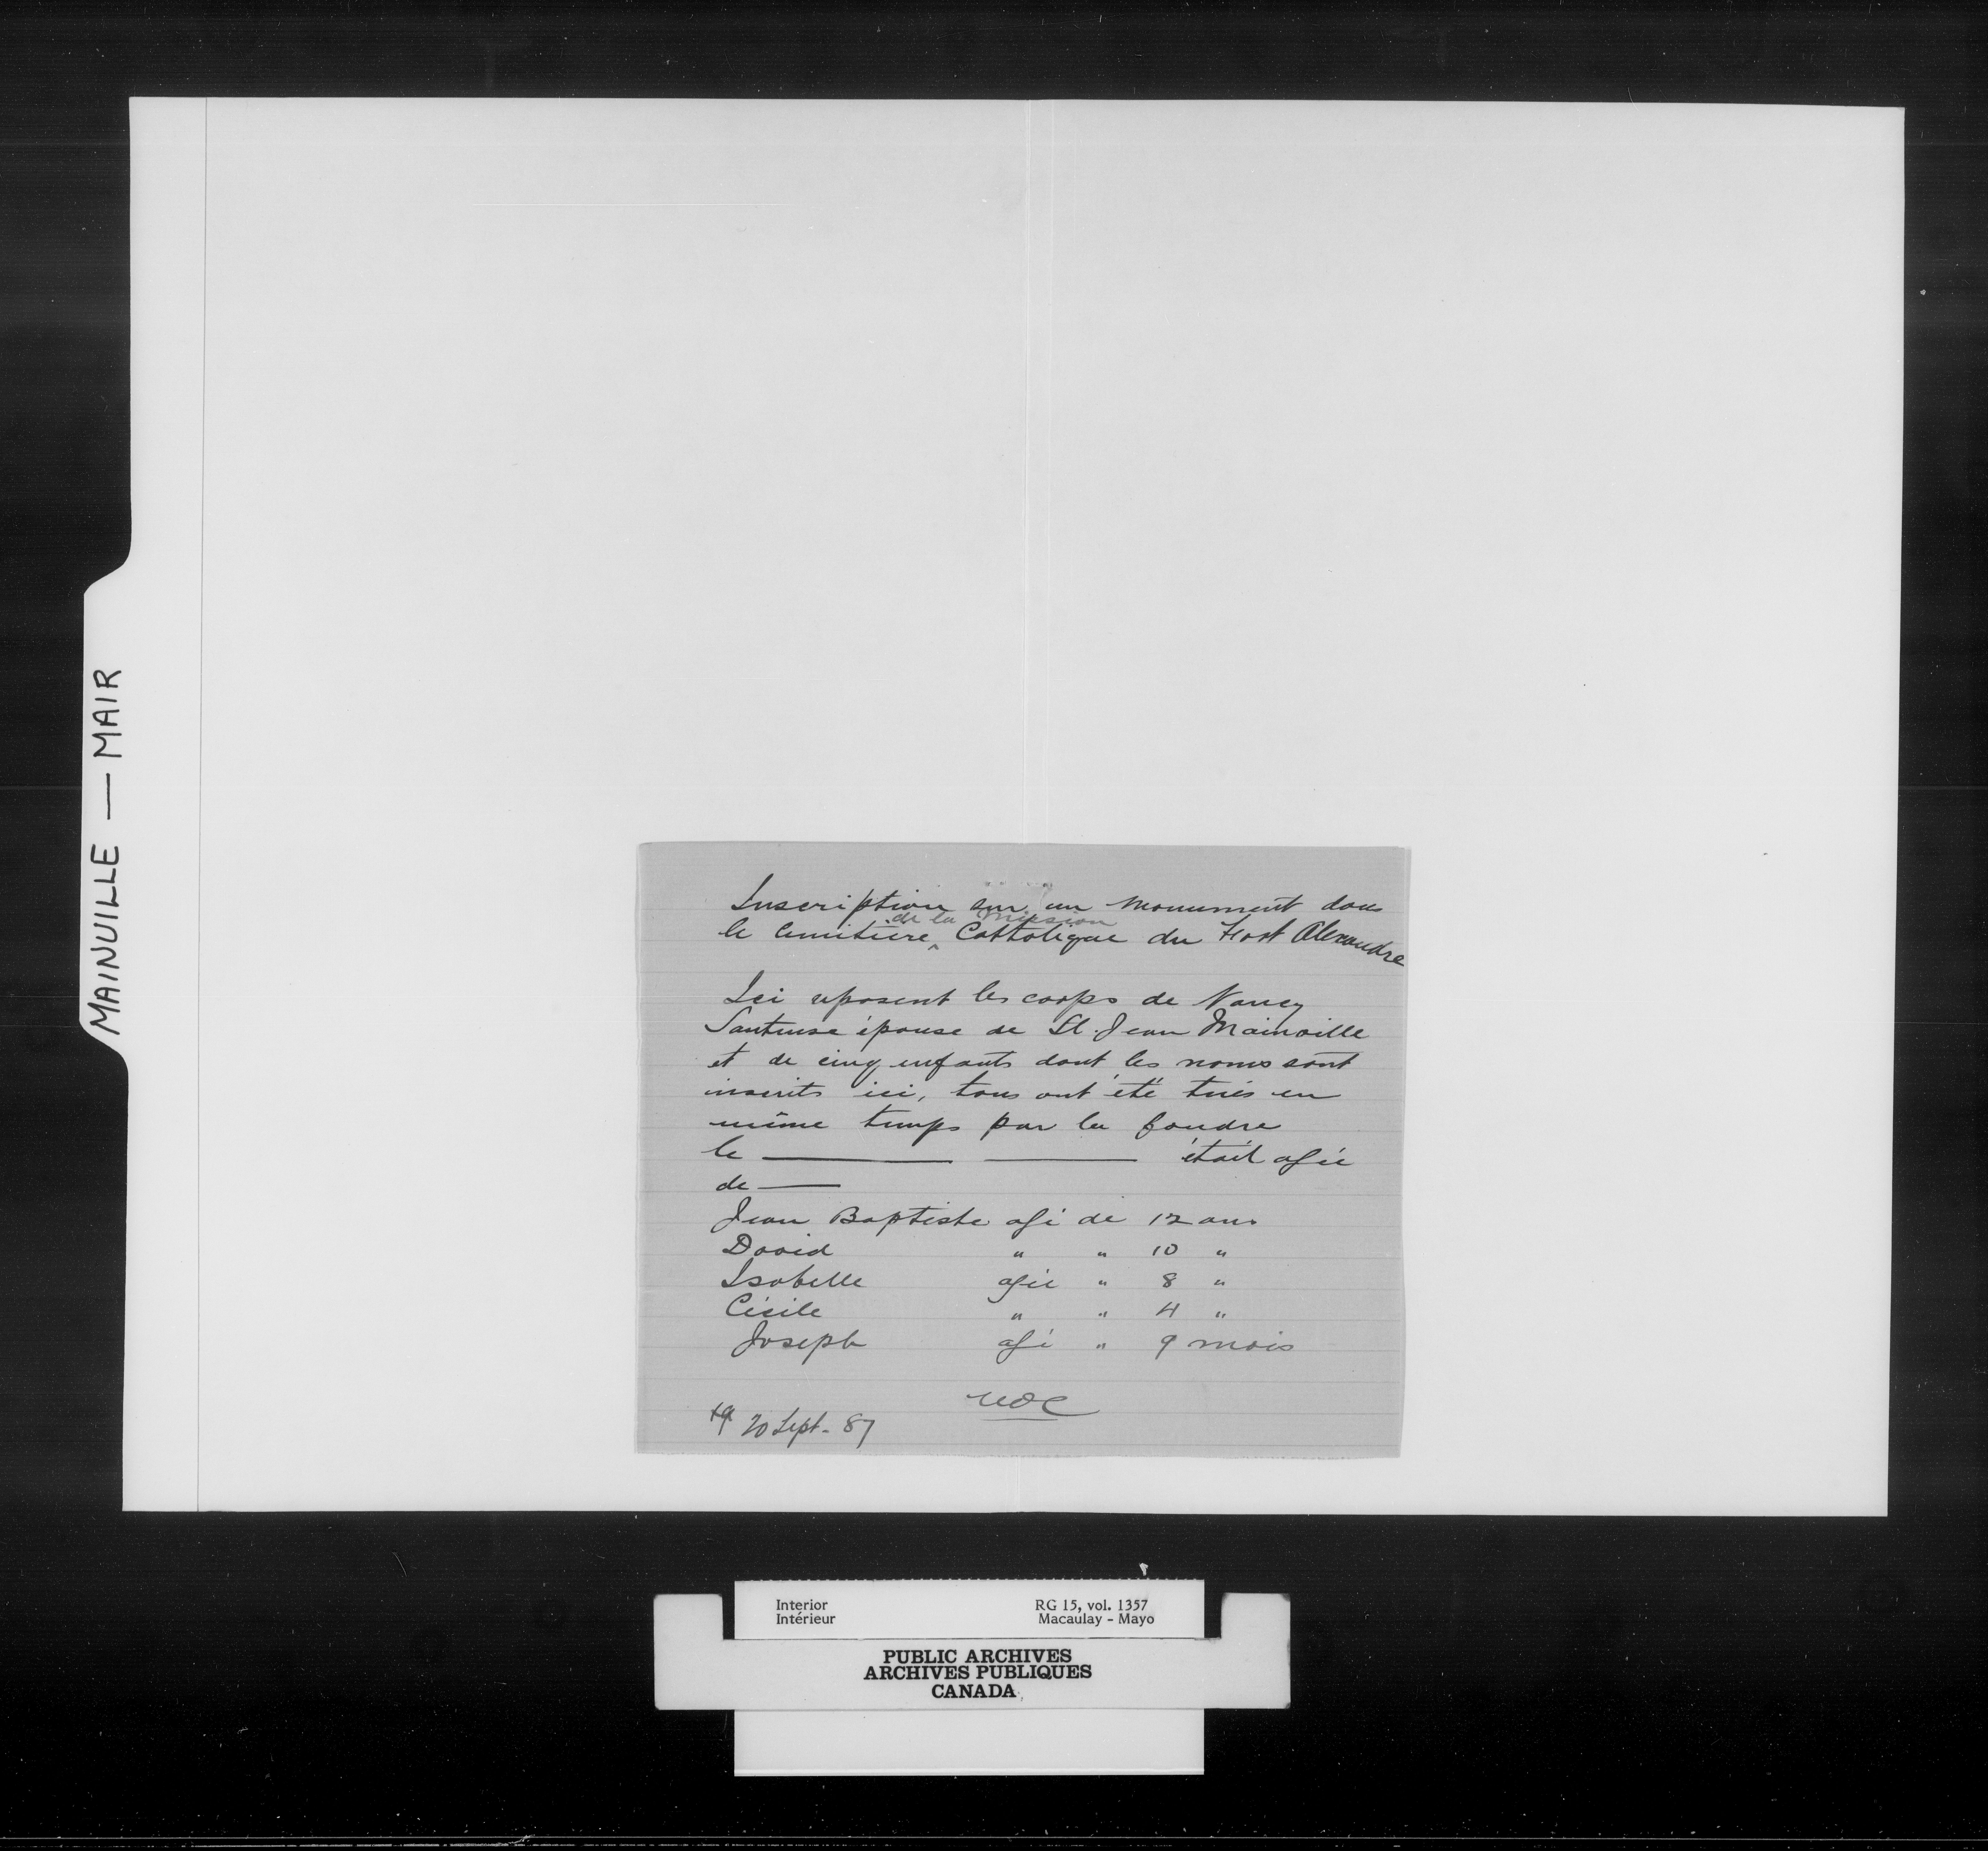 MAINVILLE — MAIR
Inscription sur un monument dans
de la Mission
le Cimitière ^ Cattolique du Fort Alexandre
Ici reposent les corps de Nancy
Sauteuse épouse de St. Jean Mainville
et de cinq enfants dont les noms sont
inscrits ici, tous ont été tués en
même temps par la foudre
le ——— ——— était agée
de ——
Jean Baptiste agé de 12 ans
David " " 10 "
Isabelle agée " 8 "
Cécile " " 4 "
Joseph agé " 9 mois
20 Sept. 87
Interior
Intérieur
RG 15, vol. 1357
Macaulay - Mayo
PUBLIC ARCHIVES
ARCHIVES PUBLIQUES
CANADA